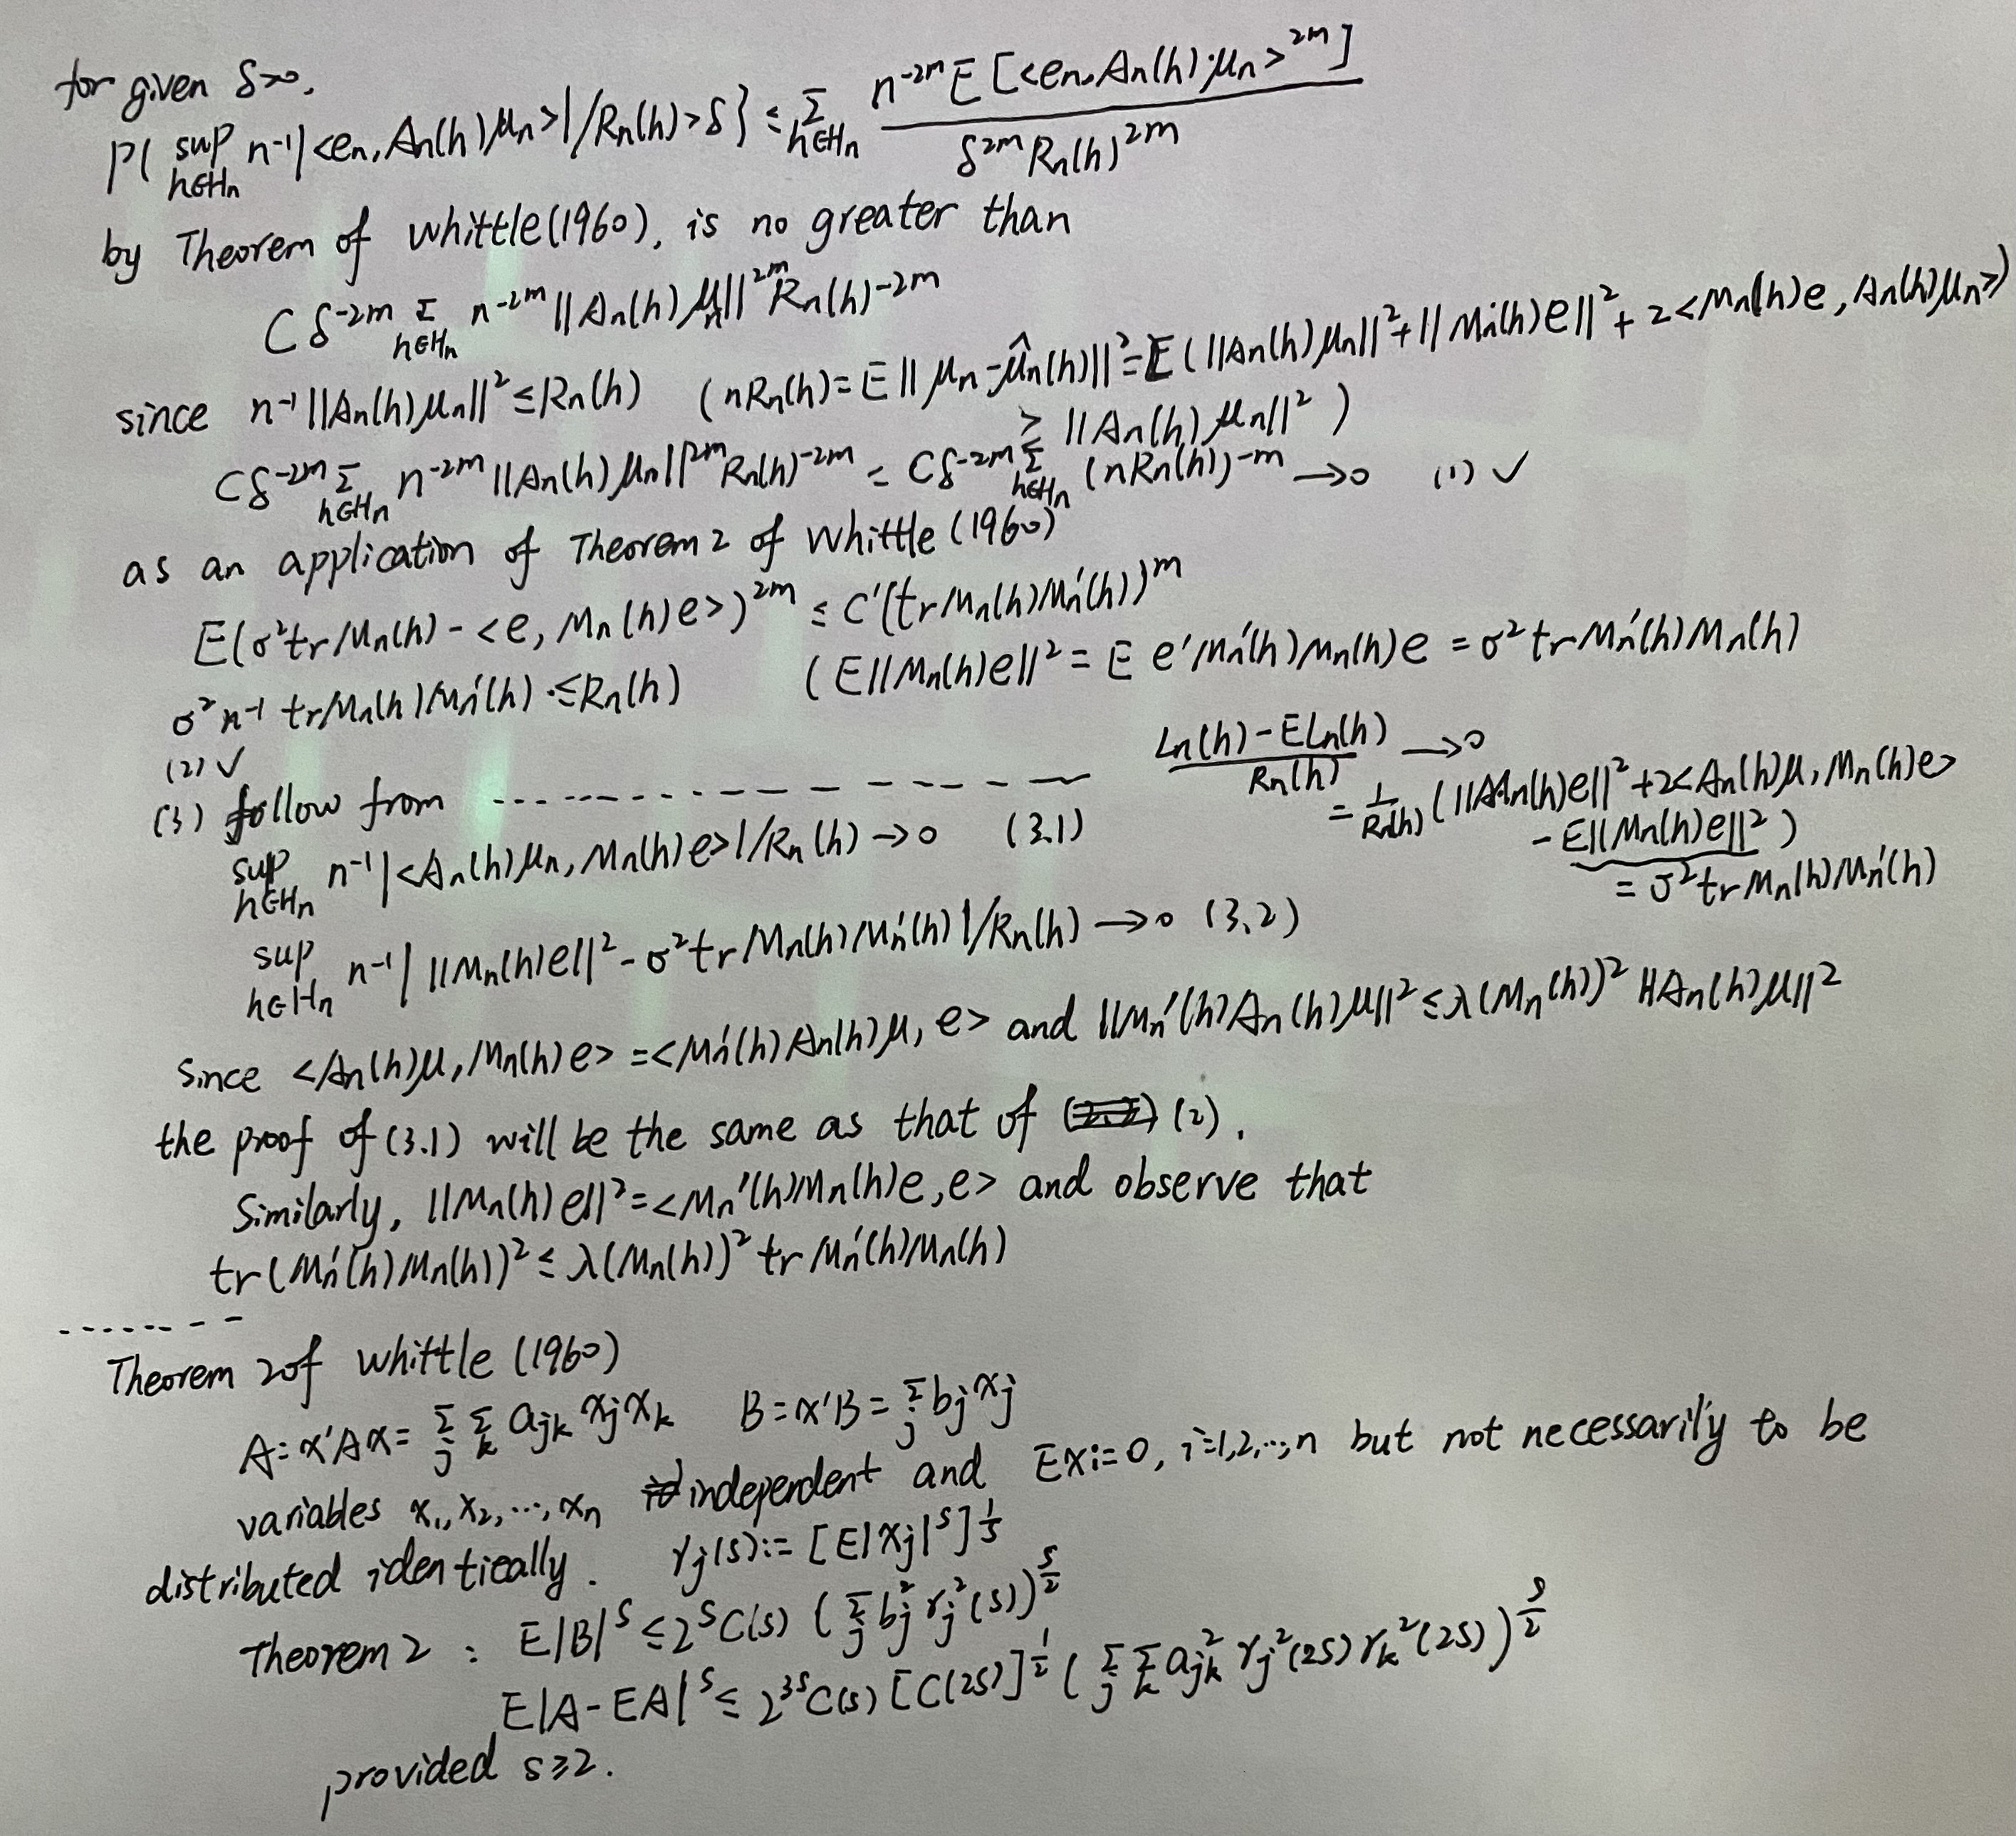 for given δ>0,
P{ sup_{h∈Hn} n⁻¹|<en, An(h)μn>|/Rn(h)>δ} ≤ Σ_{h∈Hn} n^{-2m}E[<en, An(h)·μn>^{2m}] / δ^{2m}Rn(h)^{2m}
by Theorem of Whittle(1960), is no greater than
Cδ^{-2m} Σ_{h∈Hn} n^{-2m}||An(h)μn||^{2m}Rn(h)^{-2m}
since n⁻¹||An(h)μn||² ≤ Rn(h) (nRn(h)=E||μn-μ̂n(h)||²=E(||An(h)μn||²+||Mn(h)e||²+2<Mn(h)e, An(h)μn>)
≥ ||An(h)μn||² )
Cδ^{-2m} Σ_{h∈Hn} n^{-2m}||An(h)μn||^{2m}Rn(h)^{-2m} ≤ Cδ^{-2m} Σ_{h∈Hn} (nRn(h))^{-m} →0 (1) ✓
as an application of Theorem 2 of Whittle (1960)
E(σ²trMn(h) - <e, Mn(h)e>)^{2m} ≤ C'(trMn(h)Mn'(h))^m
σ²n⁻¹ trMn(h)Mn'(h) ·≤Rn(h) (E||Mn(h)e||² = E e'Mn'(h)Mn(h)e = σ²trMn'(h)Mn(h)
(2) ✓
(3) follow from - - - - - - - - - - - - Ln(h)-ELn(h) / Rn(h) →0
= 1/Rn(h) (||Mn(h)e||²+2<An(h)μ, Mn(h)e>
-E||Mn(h)e||²)
= σ²trMn(h)Mn'(h)
sup_{h∈Hn} n⁻¹|<An(h)μn, Mn(h)e>|/Rn(h) →0 (3.1)
sup_{h∈Hn} n⁻¹| ||Mn(h)e||² - σ²trMn(h)Mn'(h)|/Rn(h) →0 (3.2)
since <An(h)μ, Mn(h)e> = <Mn'(h)An(h)μ, e> and ||Mn'(h)An(h)μ||² ≤ λ(Mn(h))² ||An(h)μ||²
the proof of (3.1) will be the same as that of (2).
Similarly, ||Mn(h)e||² = <Mn'(h)Mn(h)e, e> and observe that
tr(Mn'(h)Mn(h))² ≤ λ(Mn(h))² tr Mn'(h)Mn(h)
- - - - - - -
Theorem 2 of Whittle (1960)
A=x'Ax= Σ_j Σ_k a_{jk} x_j x_k B=x'B= Σ_j b_j x_j
variables x₁, x₂, ..., xn independent and Exi=0, i=1,2,...,n but not necessarily to be
distributed identically. γj(s):= [E|xj|^s]^{1/s}
Theorem 2 : E|B|^s ≤ 2^s C(s) (Σ_j b_j² γ_j²(s))^{s/2}
E|A-EA|^s ≤ 2^{3s}C(s) [C(2s)]^{1/2} (Σ_j Σ_k a_{jk}² γ_j²(2s) γ_k²(2s))^{s/2}
provided s≥2.